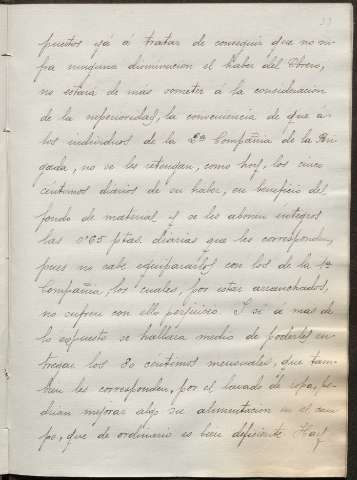 puestos yá á tratar de conseguir que no su-
fra ninguna disminución el haber del Obrero,
no estará de más someter á la consideración
de la superioridad, la conveniencia de que á
los individuos de la 2ª Compañia de la Bri-
gada, no se les retengan, como hoy, los cinco
céntimos diarios de su haber, en beneficio del
fondo de material, y se les abonen íntegros
las 0'65 ptas. diarias que les corresponden,
pues no cabe equipararlos con los de la 1ª
Compañia, los cuales, por estar arranchados,
no sufren con ello perjuicio. Y si a mas de
lo expuesto se hallara medio de poderles en-
tregar los 80 céntimos mensuales, que tam-
bien les corresponden, por el lavado de ropa, po-
drian mejorar algo su alimentación en el cam-
po, que de ordinario es bien deficiente. Hay